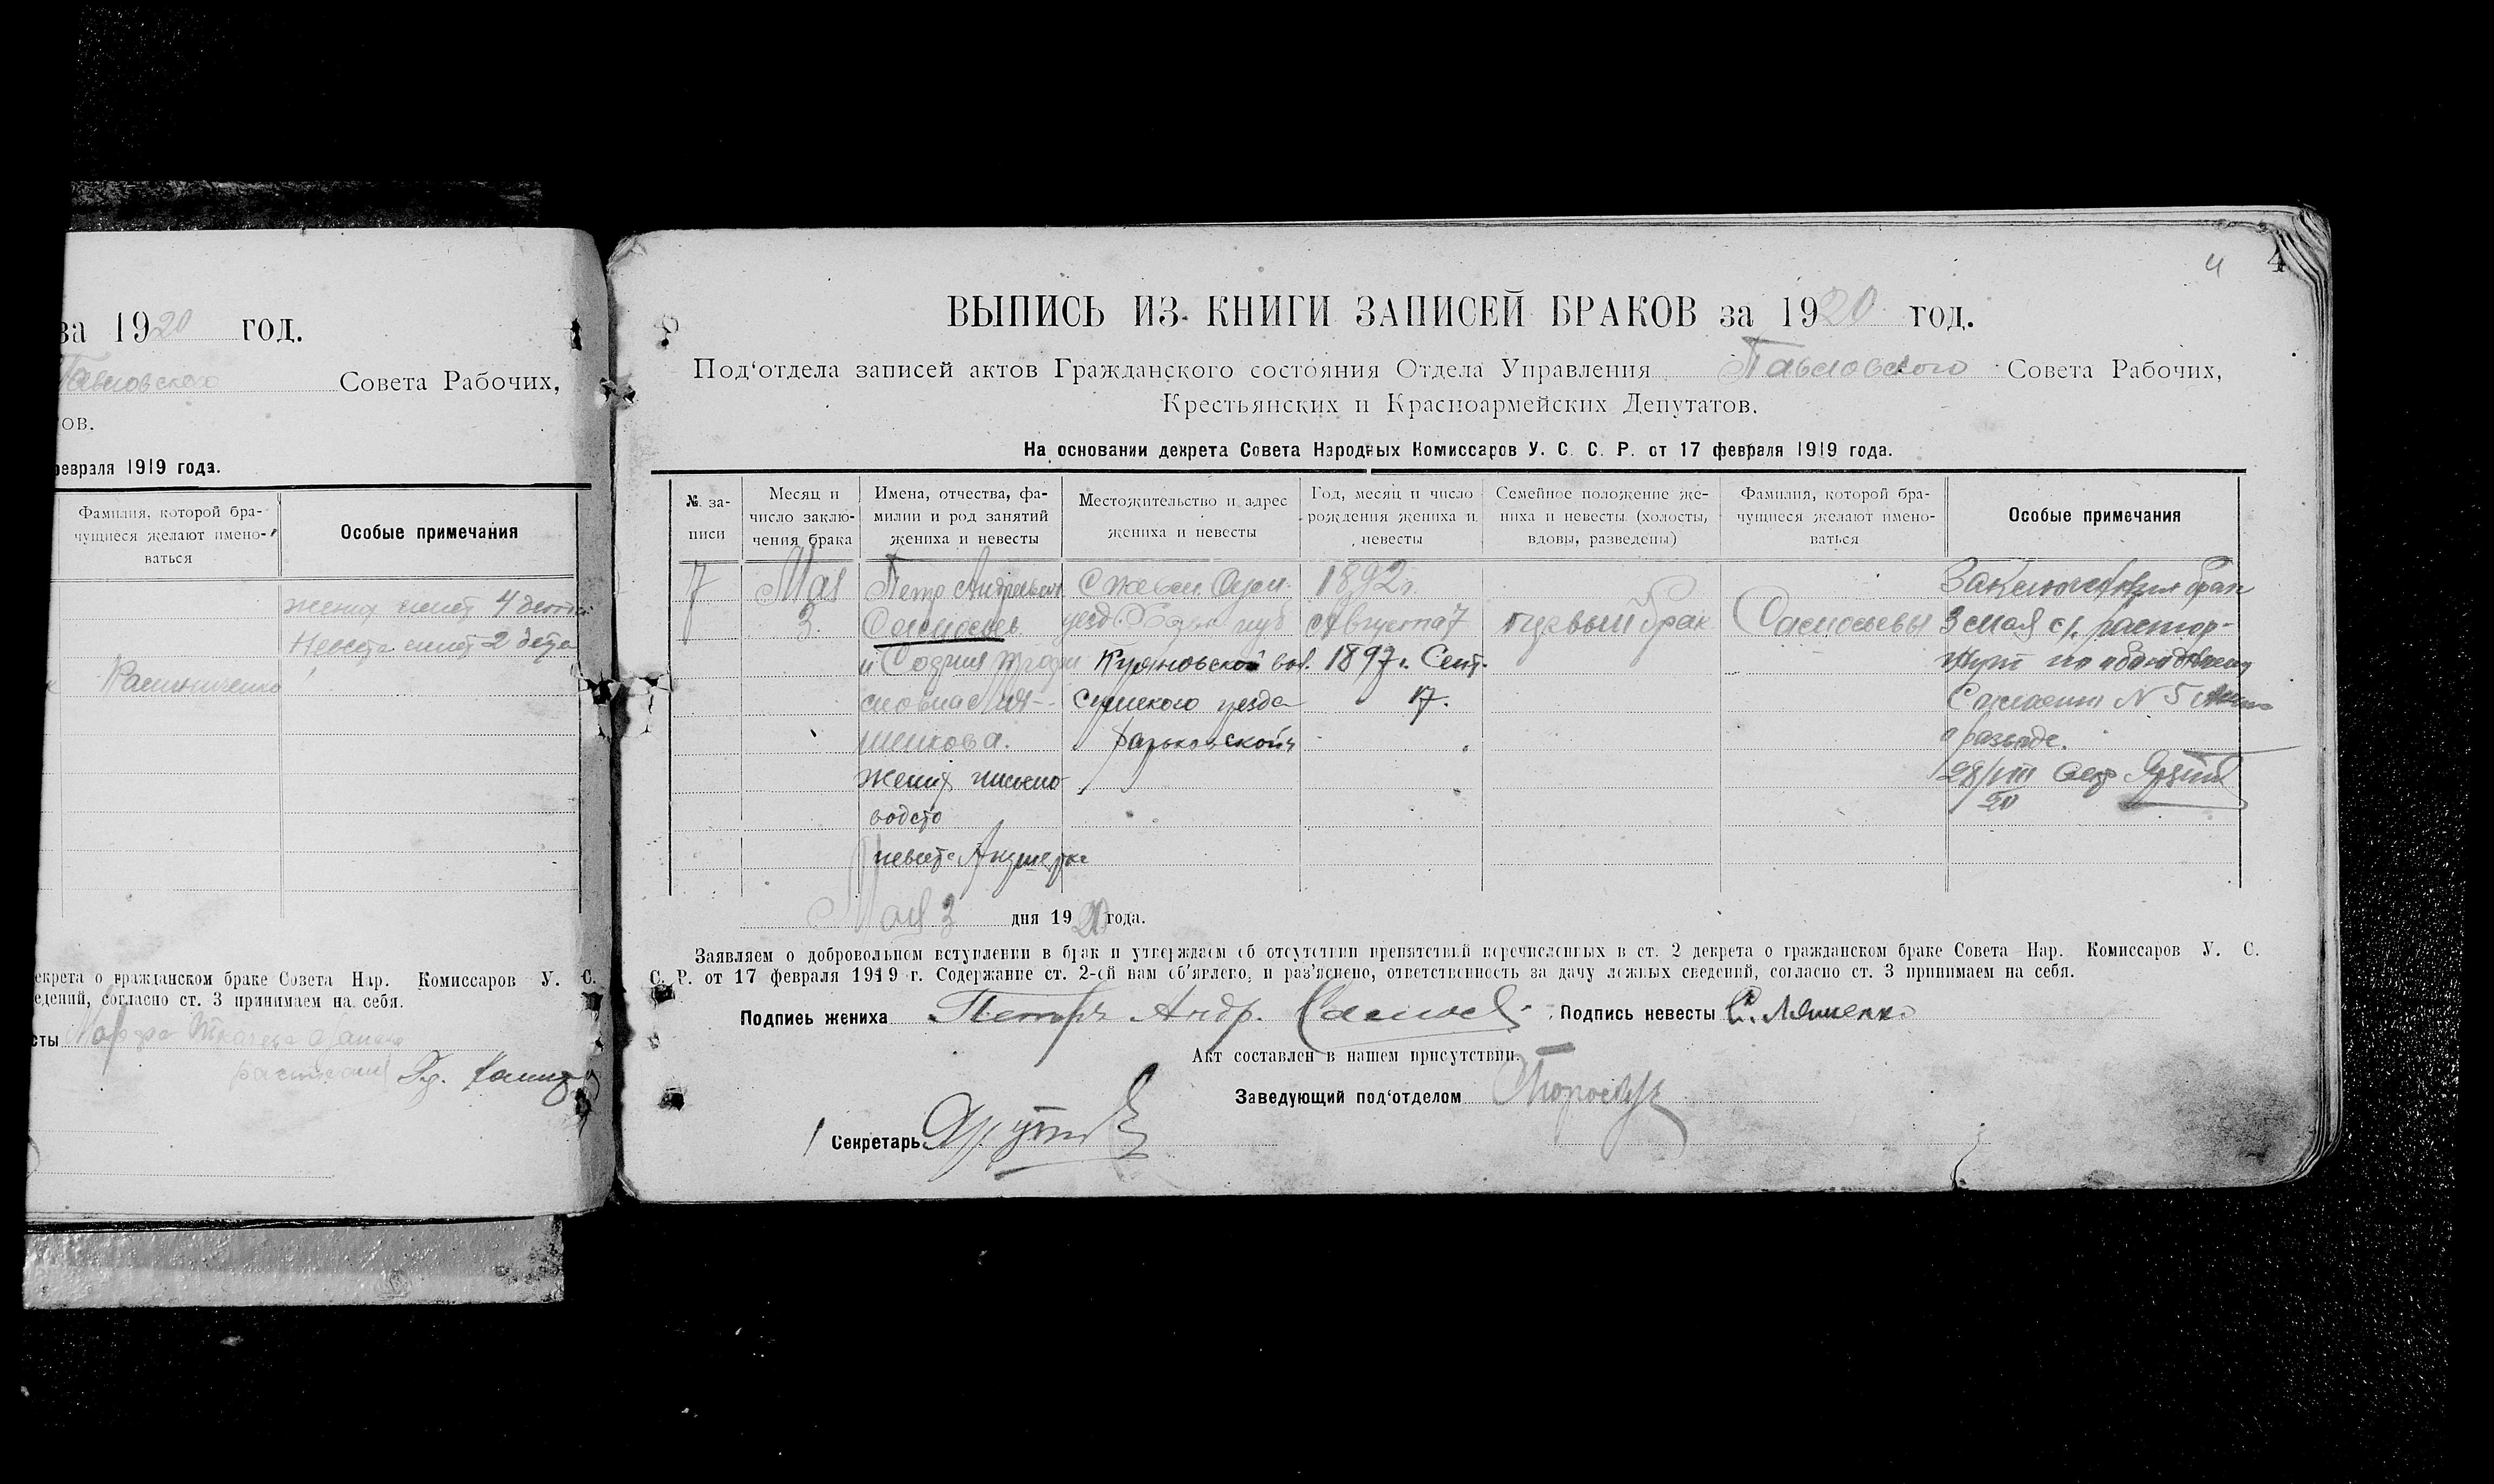 за 1920 год.
Павловского Совета Рабочих,
ов.
февраля 1919 года.
Фамилия, которой бра-
чущиеся желают имено-
ваться
Особые примечания
жених имеет 4 детей
Невеста имеет 2 детей
ВЫПИСЬ ИЗ КНИГИ ЗАПИСЕЙ БРАКОВ за 1920 год.
4
Под‘отдела записей актов Гражданского состояния Отдела Управления Павловского Совета Рабочих,
Крестьянских и Красноармейских Депутатов.
На основании декрета Совета Народных Комиссаров У. С. С. Р. от 17 февраля 1919 года.
№ за-
писи
Месяц и
число заклю-
чения брака
Имена, отчества, фа-
милии и род занятий
жениха и невесты
Местожительство и адрес
жениха и невесты
Год, месяц и число
рождения жениха и
невесты
Семейное положение же-
ниха и невесты (холосты,
вдовы, разведены)
Фамилия, которой бра-
чущиеся желают имено-
ваться
Особые примечания
7
Мая
3.
Петр Андреевич
и София
жених письмо-
водст
невеста Акушерка
уезд. губ
Куяновской вол.
Сумского уезда
Харьковской
1892 г.
Августа 7
1897 г. Сент.
17.
первый брак
брак
3 мая с/г. растор-
жут по
N 5
о разводе.
28/VIII 20
Мая 3 дня 1920 года.
Заявляем о добровольном вступлении в брак и утверждаем об отсутствии препятствий перечисленных в ст. 2 декрета о гражданском браке Совета Нар. Комиссаров У. С.
С. Р. от 17 февраля 1919 г. Содержание ст. 2-ой нам об‘явлено, и раз‘яснено, ответственность за дачу ложных сведений, согласно ст. 3 принимаем на себя.
Подпись жениха Петр Андр. Подпись невесты С. Ляшенко
Акт составлен в нашем присутствии.
Заведующий под‘отделом
Секретарь
екрета о гражданском браке Совета Нар. Комиссаров У. С.
едений, согласно ст. 3 принимаем на себя.
сты